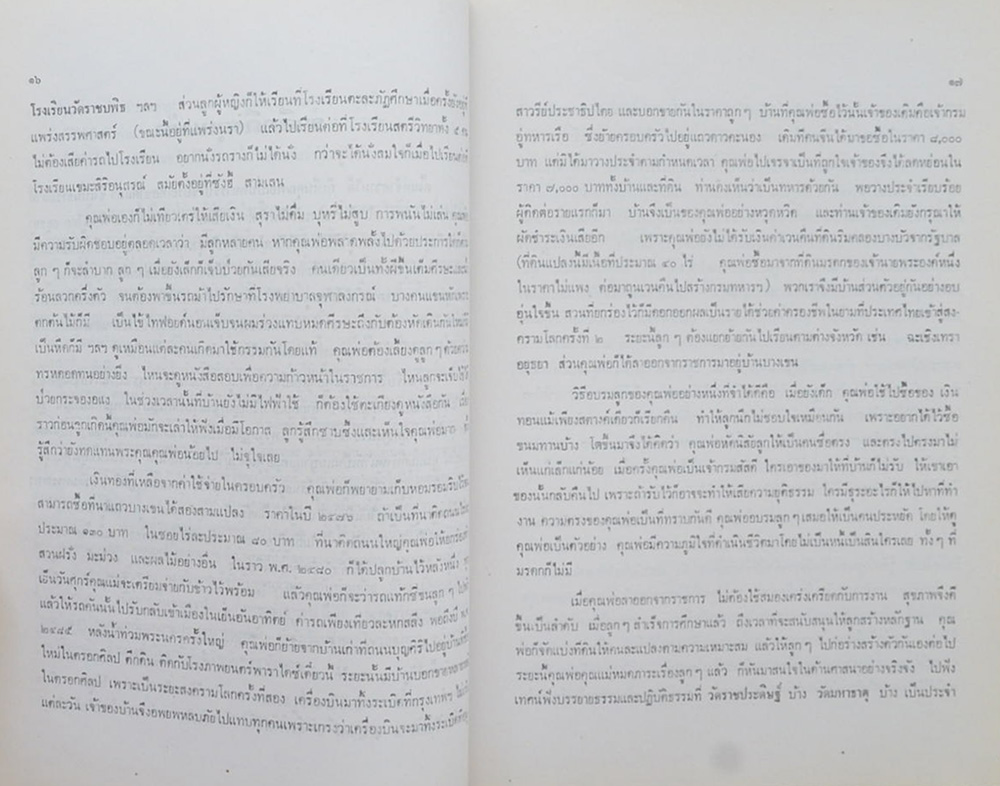 ๑๖
โรงเรียนวัดราชบพิธ ฯลฯ ส่วนลูกผู้หญิงก็ให้เรียนที่โรงเรียนตะละภัฏศึกษาเมื่อครั้งยังอยู่ที่
แพร่งสรรพศาสตร์ (ขณะนี้อยู่ที่แพร่งนรา) แล้วไปเรียนต่อที่โรงเรียนสตรีวิทยาทั้ง ๕ คน
ไม่ต้องเสียค่ารถไปโรงเรียน อยากนั่งรถรางก็ไม่ได้นั่ง กว่าจะได้นั่งสมใจก็เมื่อไปเรียนต่อที่
โรงเรียนเขมะสิริอนุสรณ์ สมัยตั้งอยู่ที่ซังฮี้ สามเสน
คุณพ่อเองก็ไม่เที่ยวเตร่ให้เสียเงิน สุราไม่ดื่ม บุหรี่ไม่สูบ การพนันไม่เล่น คุณพ่อ
มีความรับผิดชอบอยู่ตลอดเวลาว่า มีลูกหลายคน หากคุณพ่อพลาดพลั้งไปด้วยประการใดก็ตาม
ลูก ๆ ก็จะลำบาก ลูก ๆ เมื่อยังเด็กก็เจ็บป่วยกันเสียจริง คนเดียวเป็นทั้งฝีขึ้นเต็มศีรษะและ
ร้อนลวกครึ่งตัว จนต้องพาขึ้นรถม้าไปรักษาที่โรงพยาบาลจุฬาลงกรณ์ บางคนแขนหัก
ตกต้นไม้ก็มี เป็นไข้ไทฟอยด์นอนเจ็บจนผมร่วงแทบหมดศีรษะถึงกับต้องหัดเดินกันใหม่ก็มี
เป็นหืดก็มี ฯลฯ ดูเหมือนแต่ละคนเกิดมาใช้กรรมกันโดยแท้ คุณพ่อต้องเลี้ยงดูลูก ๆ ด้วยความ
ทรหดอดทนอย่างยิ่ง ไหนจะดูหนังสือสอบเพื่อความก้าวหน้าในราชการ ไหนลูกจะเจ็บไข้ได้
ป่วยกระจองอแง ในช่วงเวลานั้นที่บ้านยังไม่มีไฟฟ้าใช้ ก็ต้องใช้ตะเกียงดูหนังสือกัน เรื่อง
ราวก่อนลูกเกิดนี้คุณพ่อมักจะเล่าให้ฟังเมื่อมีโอกาส ลูกรู้สึกซาบซึ้งและเห็นใจคุณพ่อมาก
รู้สึกว่ายังทดแทนพระคุณคุณพ่อน้อยไป ไม่จุใจเลย
เงินทองที่เหลือจากค่าใช้จ่ายในครอบครัว คุณพ่อก็พยายามเก็บหอมรอมริบไว้
สามารถซื้อที่นาแถวบางเขนได้สองสามแปลง ราคาในปี ๒๔๗๖ ถ้าเป็นที่นาติดถนนไร่ละ
ประมาณ ๑๓๐ บาท ในซอยไร่ละประมาณ ๘๐ บาท ที่นาติดถนนใหญ่คุณพ่อให้ยกร่อง
สวนฝรั่ง มะม่วง และผลไม้อย่างอื่น ในราว พ.ศ. ๒๔๘๐ ก็ได้ปลูกบ้านไว้หลังหนึ่ง
เย็นวันศุกร์คุณแม่จะเตรียมจ่ายกับข้าวไว้พร้อม แล้วคุณพ่อก็จะว่ารถแท็กซี่ขนลูก ๆ ไป
แล้วให้รถคันนั้นไปรับกลับเข้าเมืองในเย็นอันอาทิตย์ ค่ารถเพียงเที่ยวละหกสลึง พอถึงปี พ.ศ.
๒๔๘๕ หลังน้ำท่วมพระนครครั้งใหญ่ คุณพ่อก็ย้ายจากบ้านเก่าที่ถนนบุญศิริไปอยู่บ้าน
ใหม่ในตรอกศิลป ตึกดิน ติดกับโรงภาพยนตร์พาราไดซ์เดี๋ยวนี้ ระยะนั้นมีบ้านบอกขาย
ในตรอกศิลป เพราะเป็นระยะสงครามโลกครั้งที่สอง เครื่องบินมาทิ้งระเบิดที่กรุงเทพฯ
แต่ละวัน เจ้าของบ้านจึงอพยพหลบภัยไปแทบทุกคนเพราะเกรงว่าเครื่องบินจะมาทิ้งระเบิด
๑๗
สาวรีย์ประชาธิปไตย และบอกขายกันในราคาถูกๆ บ้านที่คุณพ่อซื้อไว้นั้นเจ้าของเดิมคือเจ้ากรม
อู่ทหารเรือ ซึ่งย้ายครอบครัวไปอยู่แถวดาวคะนอง เดิมทีคนจีนได้มาขอซื้อในราคา ๘,๐๐๐
บาท แต่มิได้มาวางประจำตามกำหนดเวลา คุณพ่อไปเจรจาเป็นที่ถูกใจเจ้าของจึงได้ลดหย่อนใน
ราคา ๗,๐๐๐ บาททั้งบ้านและที่ดิน ท่านคงเห็นว่าเป็นทหารด้วยกัน พอวางประจำเรียบร้อย
ผู้ติดต่อรายแรกก็มา บ้านจึงเป็นของคุณพ่ออย่างหวุดหวิด และท่านเจ้าของเดิมยังกรุณาให้
ผัดชำระเงินเสียอีก เพราะคุณพ่อยังไม่ได้รับเงินค่าเวนคืนที่ดินริมคลองบางบัวจากรัฐบาล
(ที่ดินแปลงนี้มีเนื้อที่ประมาณ ๔๐ ไร่ คุณพ่อซื้อมาจากที่ดินมรดกของเจ้านายพระองค์หนึ่ง
ในราคาไม่แพง ต่อมาถูกเวนคืนไปสร้างกรมทหารฯ) พวกเราจึงมีบ้านส่วนตัวอยู่กันอย่างอบ
อุ่นใจขึ้น สวนที่ยกร่องไว้ก็ผลิดอกออกผลเป็นรายได้ช่วยค่าครองชีพในยามที่ประเทศไทยเข้าสู่สง-
ครามโลกครั้งที่ ๒ ระยะนี้ลูก ๆ ต้องแยกย้ายกันไปเรียนตามต่างจังหวัด เช่น ฉะเชิงเทรา
อยุธยา ส่วนคุณพ่อก็ได้ลาออกจากราชการมาอยู่บ้านบางเขน
วิธีอบรมลูกของคุณพ่ออย่างหนึ่งที่จำได้ดีคือ เมื่อยังเด็ก คุณพ่อใช้ไปซื้อของ เงิน
ทอนแม้เพียงสตางค์เดียวก็เรียกคืน ทำให้ลูกนึกไม่ชอบใจเหมือนกัน เพราะอยากได้ไว้ซื้อ
ขนมทานบ้าง โตขึ้นมาจึงได้คิดว่า คุณพ่อหัดนิสัยลูกให้เป็นคนซื่อตรง และตรงไปตรงมาไม่
เห็นแก่เล็กแก่น้อย เมื่อครั้งคุณพ่อเป็นเจ้ากรมสัสดี ใครเอาของมาให้ที่บ้านก็ไม่รับ ให้เขาเอา
ของนั้นกลับคืนไป เพราะถ้ารับไว้ก็อาจจะทำให้เสียความยุติธรรม ใครมีธุระอะไรก็ให้ไปหาที่ทำ
งาน ความตรงของคุณพ่อเป็นที่ทราบกันดี คุณพ่ออบรมลูก ๆ เสมอให้เป็นคนประหยัด โดยให้ดู
คุณพ่อเป็นตัวอย่าง คุณพ่อมีความภูมิใจที่ดำเนินชีวิตมาโดยไม่เป็นหนี้เป็นสินใครเลย ทั้งๆ ที่
มรดกก็ไม่มี
เมื่อคุณพ่อลาออกจากราชการ ไม่ต้องใช้สมองเคร่งเครียดกับการงาน สุขภาพจึงดี
ขึ้นเป็นลำดับ เมื่อลูก ๆ สำเร็จการศึกษาแล้ว ถึงเวลาที่จะสนับสนุนให้ลูกสร้างหลักฐาน คุณ
พ่อก็จัดแบ่งที่ดินให้คนละแปลงตามความเหมาะสม แล้วให้ลูก ๆ ไปก่อร่างสร้างตัวกันเองต่อไป
ระยะนี้คุณพ่อคุณแม่หมดภาระเรื่องลูก ๆ แล้ว ก็หันมาสนใจในด้านศาสนาอย่างจริงจัง ไปฟัง
เทศน์ฟังบรรยายธรรมและปฏิบัติธรรมที่ วัดราชประดิษฐ์ บ้าง วัดมหาธาตุ บ้าง เป็นประจำ